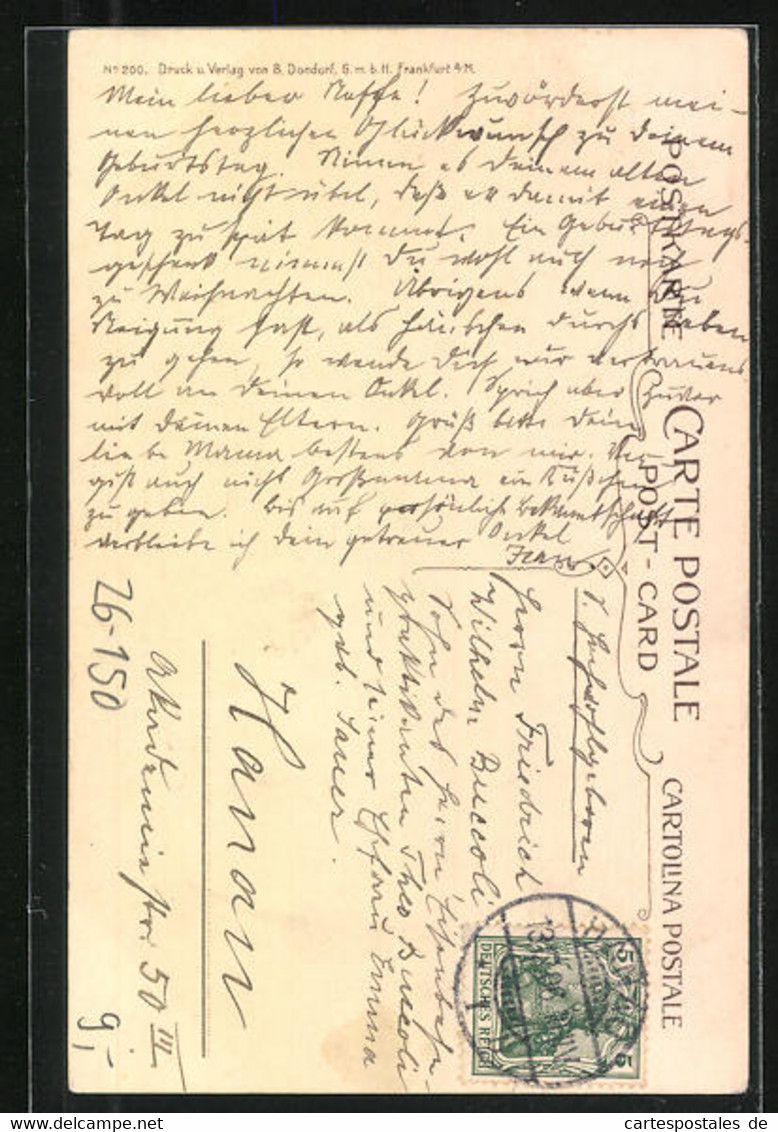 No 200. Druck u. Verlag von B. Dondorf, G.m.b.H. Frankfurt a/M.
Mein lieber Neffe! Zuvörderst mei-
nen herzlichen Glückwunsch zu Deinem
Geburtstag. Nimm es Deinem alten
Onkel nicht übel, daß er damit einen
Tag zu spät kommt. Ein Geburtstags-
geschenk nimmst Du wohl auch noch
zu Weihnachten. Übrigens wenn Du
Neigung hast, als durchs Leben
zu gehen, so wende Dich nur vertrauens
voll an Deinen Onkel. Sprich aber zuvor
mit Deinen Eltern. Grüß bitte Deine
liebe Mama bestens von mir. Ver-
giß auch nicht Großmama ein Küßchen
zu geben. Bis auf persönliche Bekanntschaft
verbleibe ich Dein getreuer Onkel
POSTKARTE
CARTE POSTALE
POST-CARD
CARTOLINA POSTALE
S. Hochwohlgeboren
Herrn Friedrich
Wilhelm Buccoli
Sohn des Herrn Eisenbahn-
praktikanten Theo Buccoli
und seiner Ehefrau Emma
geb. Sauer.
Hanau
Akademiestr. 50 III
26-150
9,-
5 5
DEUTSCHES REICH
www.delcampe.net
cartespostales de